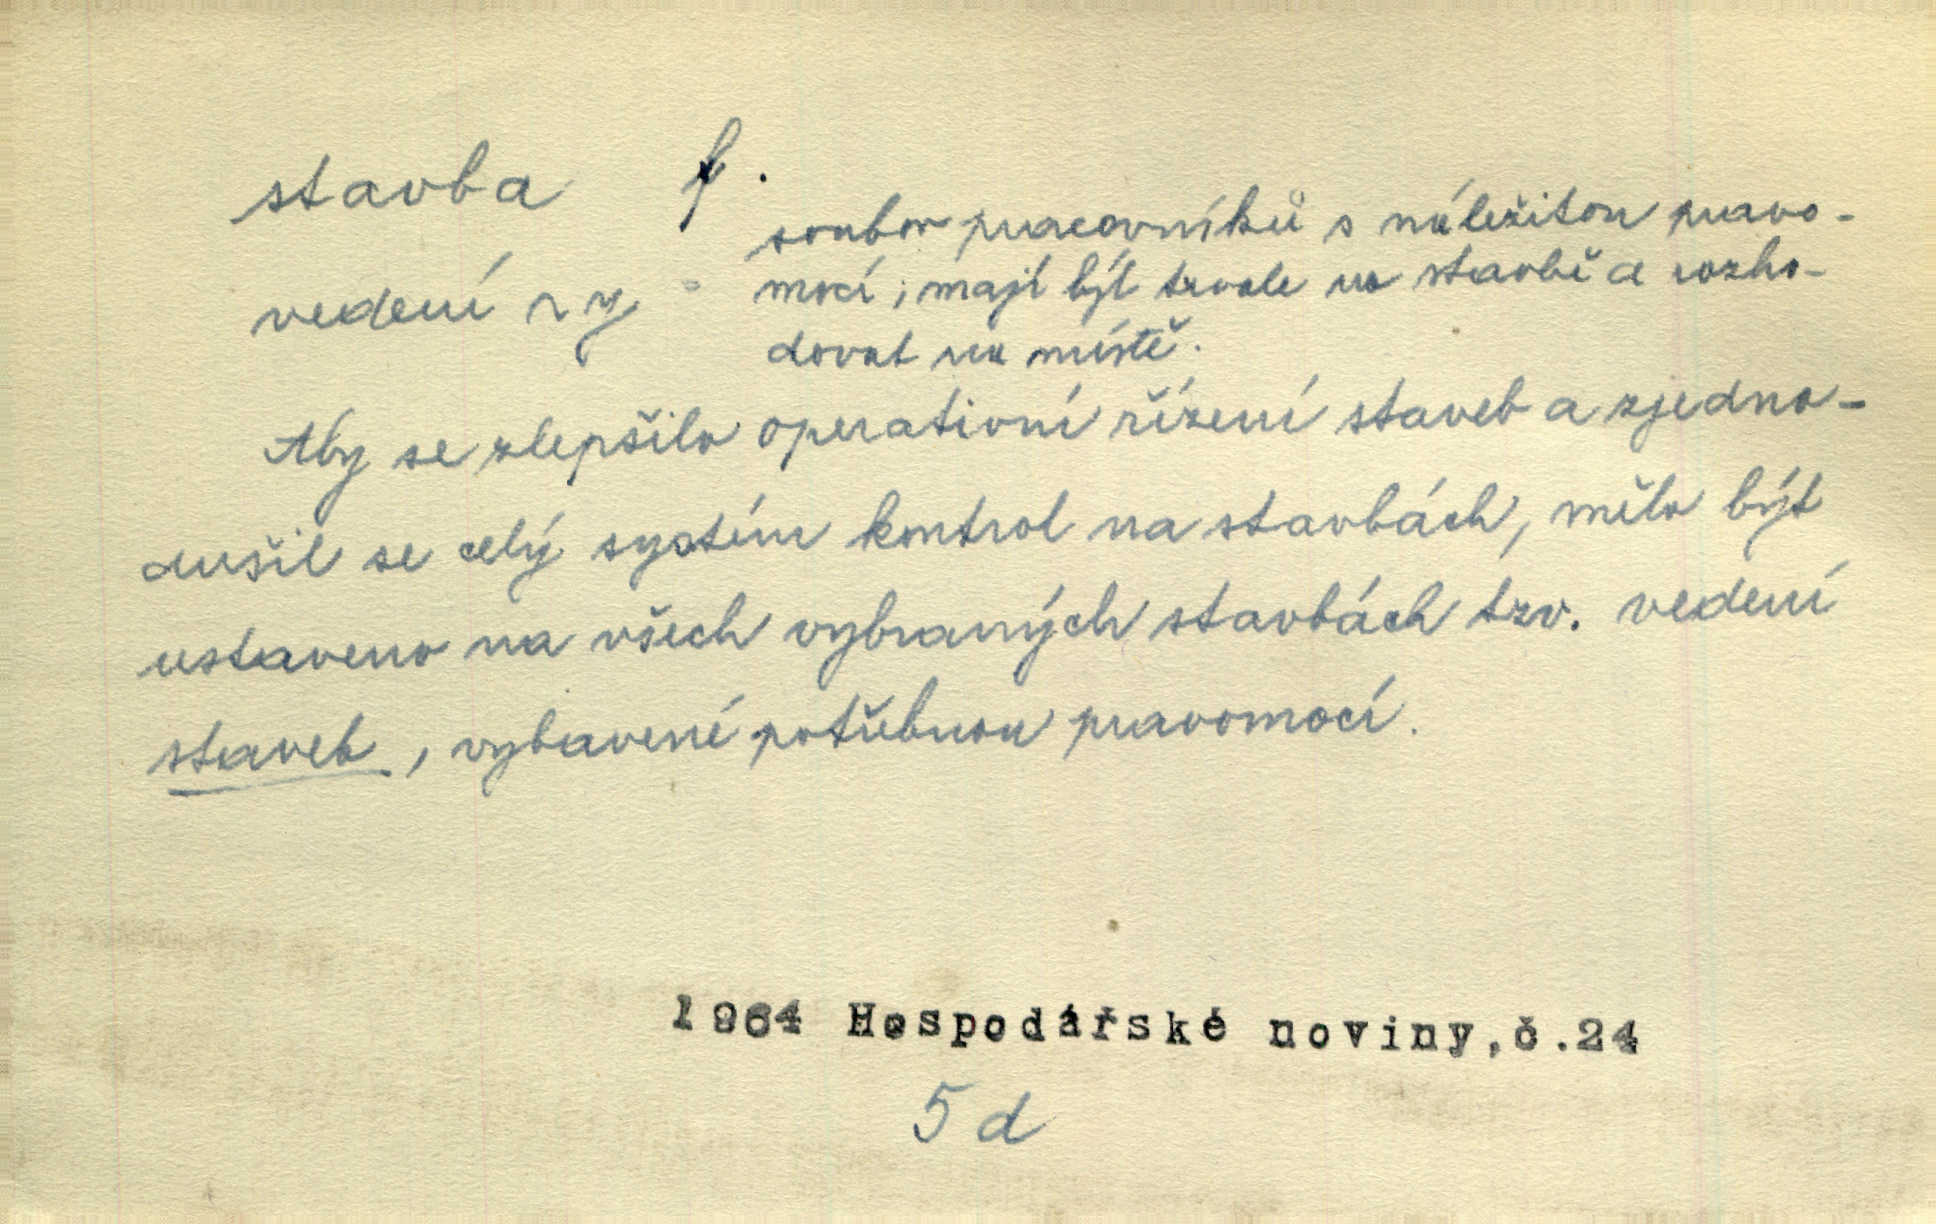 stavba f.
vedení ~ y = soubor pracovníků s náležitou pravo-
mocí; mají být trvale na stavbě a rozho-
dovat na místě.
Aby se zlepšilo operativní řízení staveb a zjedno-
dušil se celý systém kontrol na stavbách, mělo být
ustaveno na všech vybraných stavbách tzv. vedení
staveb, vybavené potřebnou pravomocí.
1964 Hospodářské noviny,č.24
5 d